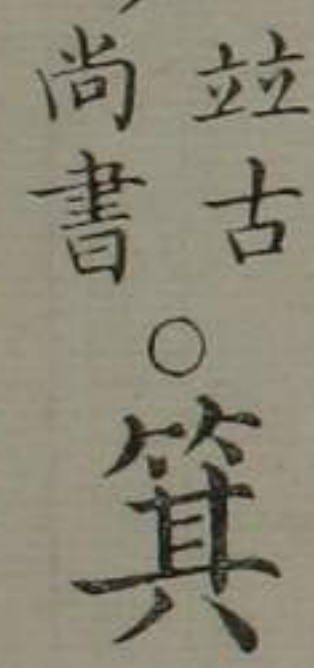 竝古
尚書
○
箕